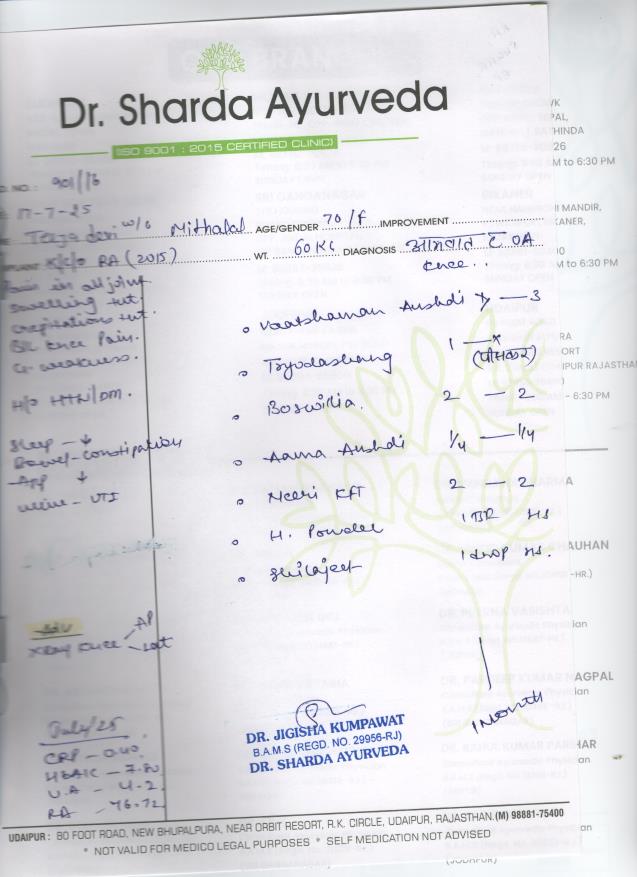 Dr. Sharda Ayurveda
(ISO 9001 : 2015 CERTIFIED CLINIC)
NO. : 901/16
17-7-25
Teeja devi w/o Mithalal AGE/GENDER 70/F IMPROVEMENT
K/c/o RA (2015) WT. 60 KG DIAGNOSIS आमवात c̄ OA
knee..
Pain in all joint
swelling +nt.
crepitations +nt.
B/L knee Pain.
G. weakness.
H/o HTN/DM.
Sleep - ↓
Bowel - constipation
App ↓
urine - UTI
Vaatshaman Aushdi — 3
Tryodashang 1 — x
Boswellia 2 — 2
Aama Aushdi 1/4 — 1/4
Neeri KFT 2 — 2
H. Powder 1 BR HS
Shilajeet 1 drop HS.
Adv
Xray knee AP
Lat
1 Month
July/25
CRP - 0.40
HBAIC - 7.80
U.A - 4.2
RA - 76.72
DR. JIGISHA KUMPAWAT
B.A.M.S (REGD. NO. 29956-RJ)
DR. SHARDA AYURVEDA
UDAIPUR : 80 FOOT ROAD, NEW BHUPALPURA, NEAR ORBIT RESORT, R.K. CIRCLE, UDAIPUR, RAJASTHAN.(M) 98881-75400
* NOT VALID FOR MEDICO LEGAL PURPOSES * SELF MEDICATION NOT ADVISED